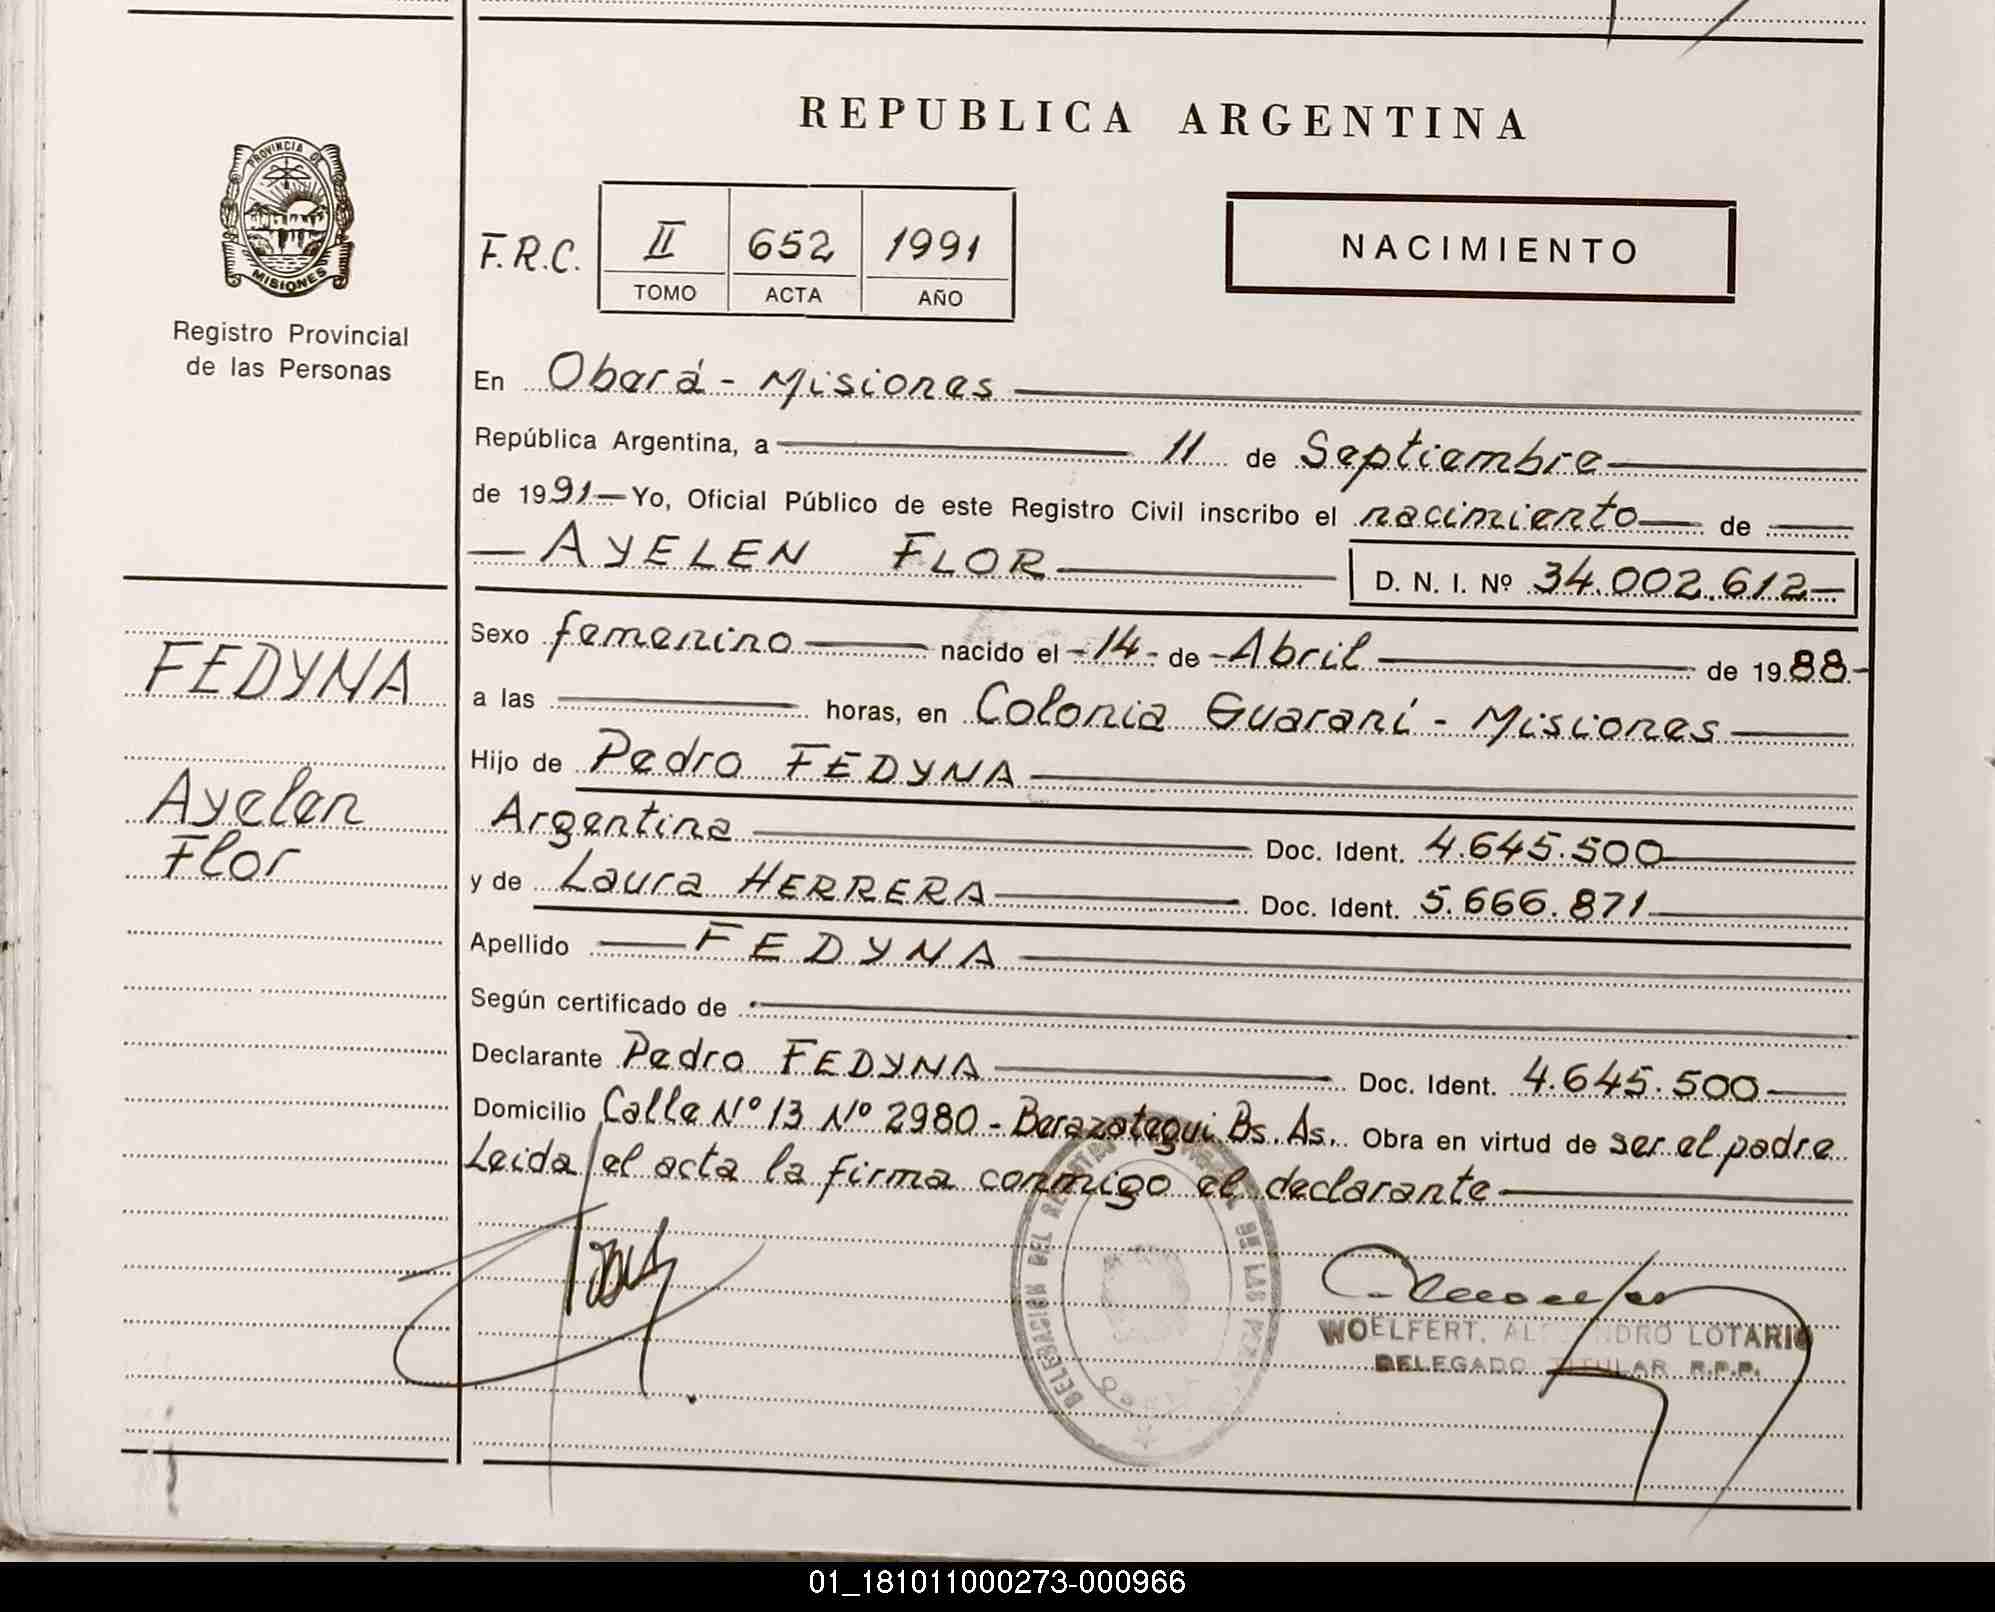 REPUBLICA ARGENTINA
PROVINCIA DE
MISIONES
Registro Provincial
de las Personas
F.R.C. II 652 1991
TOMO ACTA AÑO
NACIMIENTO
En Oberá - Misiones
República Argentina, a 11 de Septiembre
de 1991 Yo, Oficial Público de este Registro Civil inscribo el nacimiento de
AYELEN FLOR D. N. I. Nº 34.002.612
Sexo femenino nacido el -14- de -Abril de 1988-
a las horas, en Colonia Guaraní - Misiones
Hijo de Pedro FEDYNA
Argentina Doc. Ident. 4.645.500
y de Laura HERRERA Doc. Ident. 5.666.871
Apellido FEDYNA
Según certificado de
Declarante Pedro FEDYNA Doc. Ident. 4.645.500
Domicilio Calle Nº 13 Nº 2980 - Berazategui Bs. As. Obra en virtud de ser el padre
Leida el acta la firma conmigo el declarante
FEDYNA
Ayelen
Flor
DELEGACION DEL DE LAS
WOELFERT, LOTARIO
DELEGADO TITULAR R.P.P.
01_181011000273-000966